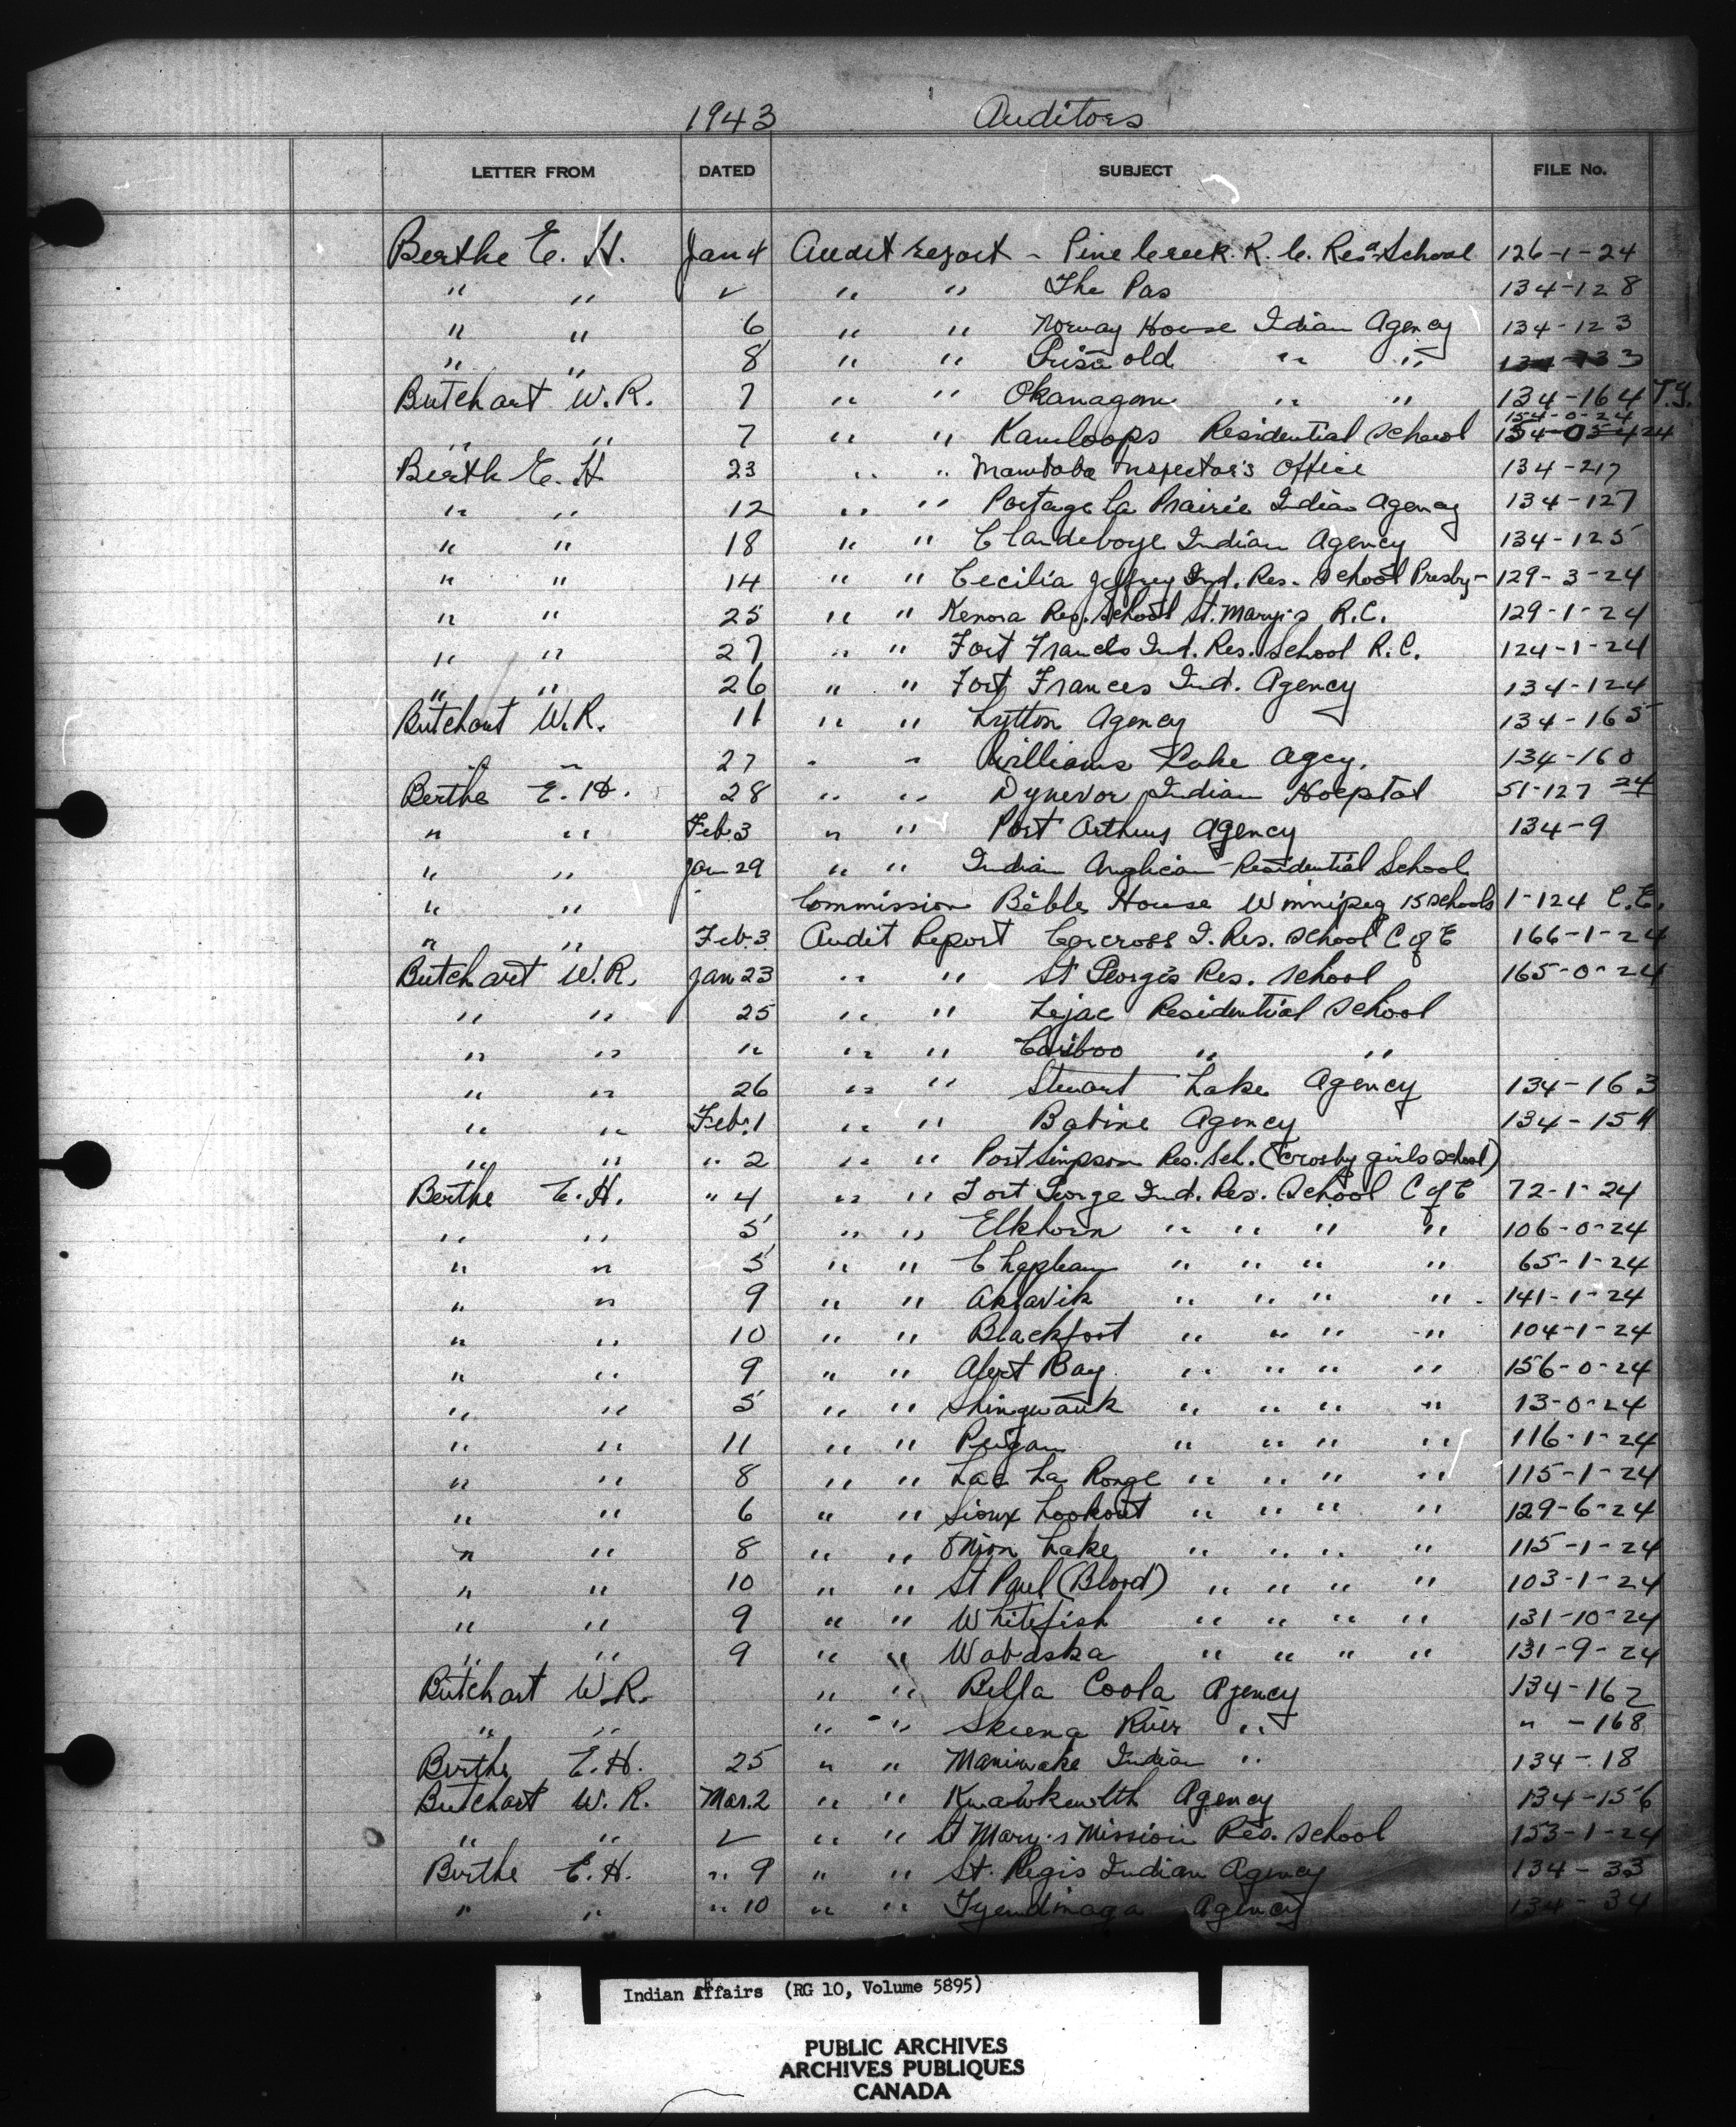 1943 Auditors
LETTER FROM DATED SUBJECT FILE No.
Berthe E. H. Jan 4 Audit report - Pine Creek R. C. Res. School 126-1-24
" " " " " The Pas 134-128
" " 6 " " Norway House Idian Agency 134-123
" " 8 " " Griswold " "
Butchart W. R. 7 " " Okanagan " " 134-164 T.G.
154-0-24
" " 7 " " Kamloops Residential School
Berth E. H 23 " " Manitoba Inspector's Office 134-217
" " 12 " " Portage la Prairie Indian Agency 134-127
" " 18 " " Clandeboye Indian Agency 134-125
" " 14 " " Cecilia Jeffrey Ind. Res. School Presby- 129-3-24
" " 25 " " Kenora Res. School St. Mary's R.C. 129-1-24
" " 27 " " Fort Francis Ind. Res. School R.C. 124-1-24
" " 26 " " Fort Frances Ind. Agency 134-124
Butchart W.R. 11 " " Lytton Agency 134-165
" " 27 " " Williams Lake Agcy. 134-160
Berthe E. H. 28 " " Dynevor Indian Hospital 51-127 24
" " Feb 3 " " Port Arthur Agency 134-9
" " Jan 29 " " Indian Anglican Residential School
" " Commission Bible House Winnipeg 15 schools 1-124 C.E.
" " Feb. 3 Audit Report Carcross I. Res. School C of E 166-1-24
Butchart W.R. Jan 23 " " St George's Res. School 165-0-24
" " 25 " " Lejac Residential School
" " " " " Cariboo " "
" " 26 " " Stewart Lake Agency 134-163
" " Feb. 1 " " Babine Agency 134-151
" " " 2 " " Port Simpson Res. Sch. (Crosby girls school)
Berthe E. H. " 4 " " Fort George Ind. Res. School C of E 72-1-24
" " 5 " " Elkhorn " " " " 106-0-24
" " 5 " " Chapleau " " " " 65-1-24
" " 9 " " Aklavik " " " " 141-1-24
" " 10 " " Blackfoot " " " " 104-1-24
" " 9 " " Alert Bay " " " " 156-0-24
" " 5 " " Shingwauk " " " " 13-0-24
" " 11 " " Peigan " " " " 116-1-24
" " 8 " " Lac La Ronge " " " " 115-1-24
" " 6 " " Sioux Lookout " " " " 129-6-24
" " 8 " " Onion Lake " " " " 115-1-24
" " 10 " " St Paul (Blood) " " " " 103-1-24
" " 9 " " Whitefish " " " " 131-10-24
" " 9 " " Wabaska " " " " 131-9-24
Butchart W.R. " " Bella Coola Agency 134-162
" " " " Skeena River " " -168
Berthe E.H. 25 " " Maniwake Indian " 134-18
Butchart W. R. Mar. 2 " " Kwawkewlth Agency 134-156
" " " " " St Mary's Mission Res. School 153-1-24
Berthe E.H. " 9 " " St. Regis Indian Agency 134-33
" " " 10 " " Tyendinaga Agency 134-34
Indian Affairs (RG 10, Volume 5895)
PUBLIC ARCHIVES
ARCHIVES PUBLIQUES
CANADA